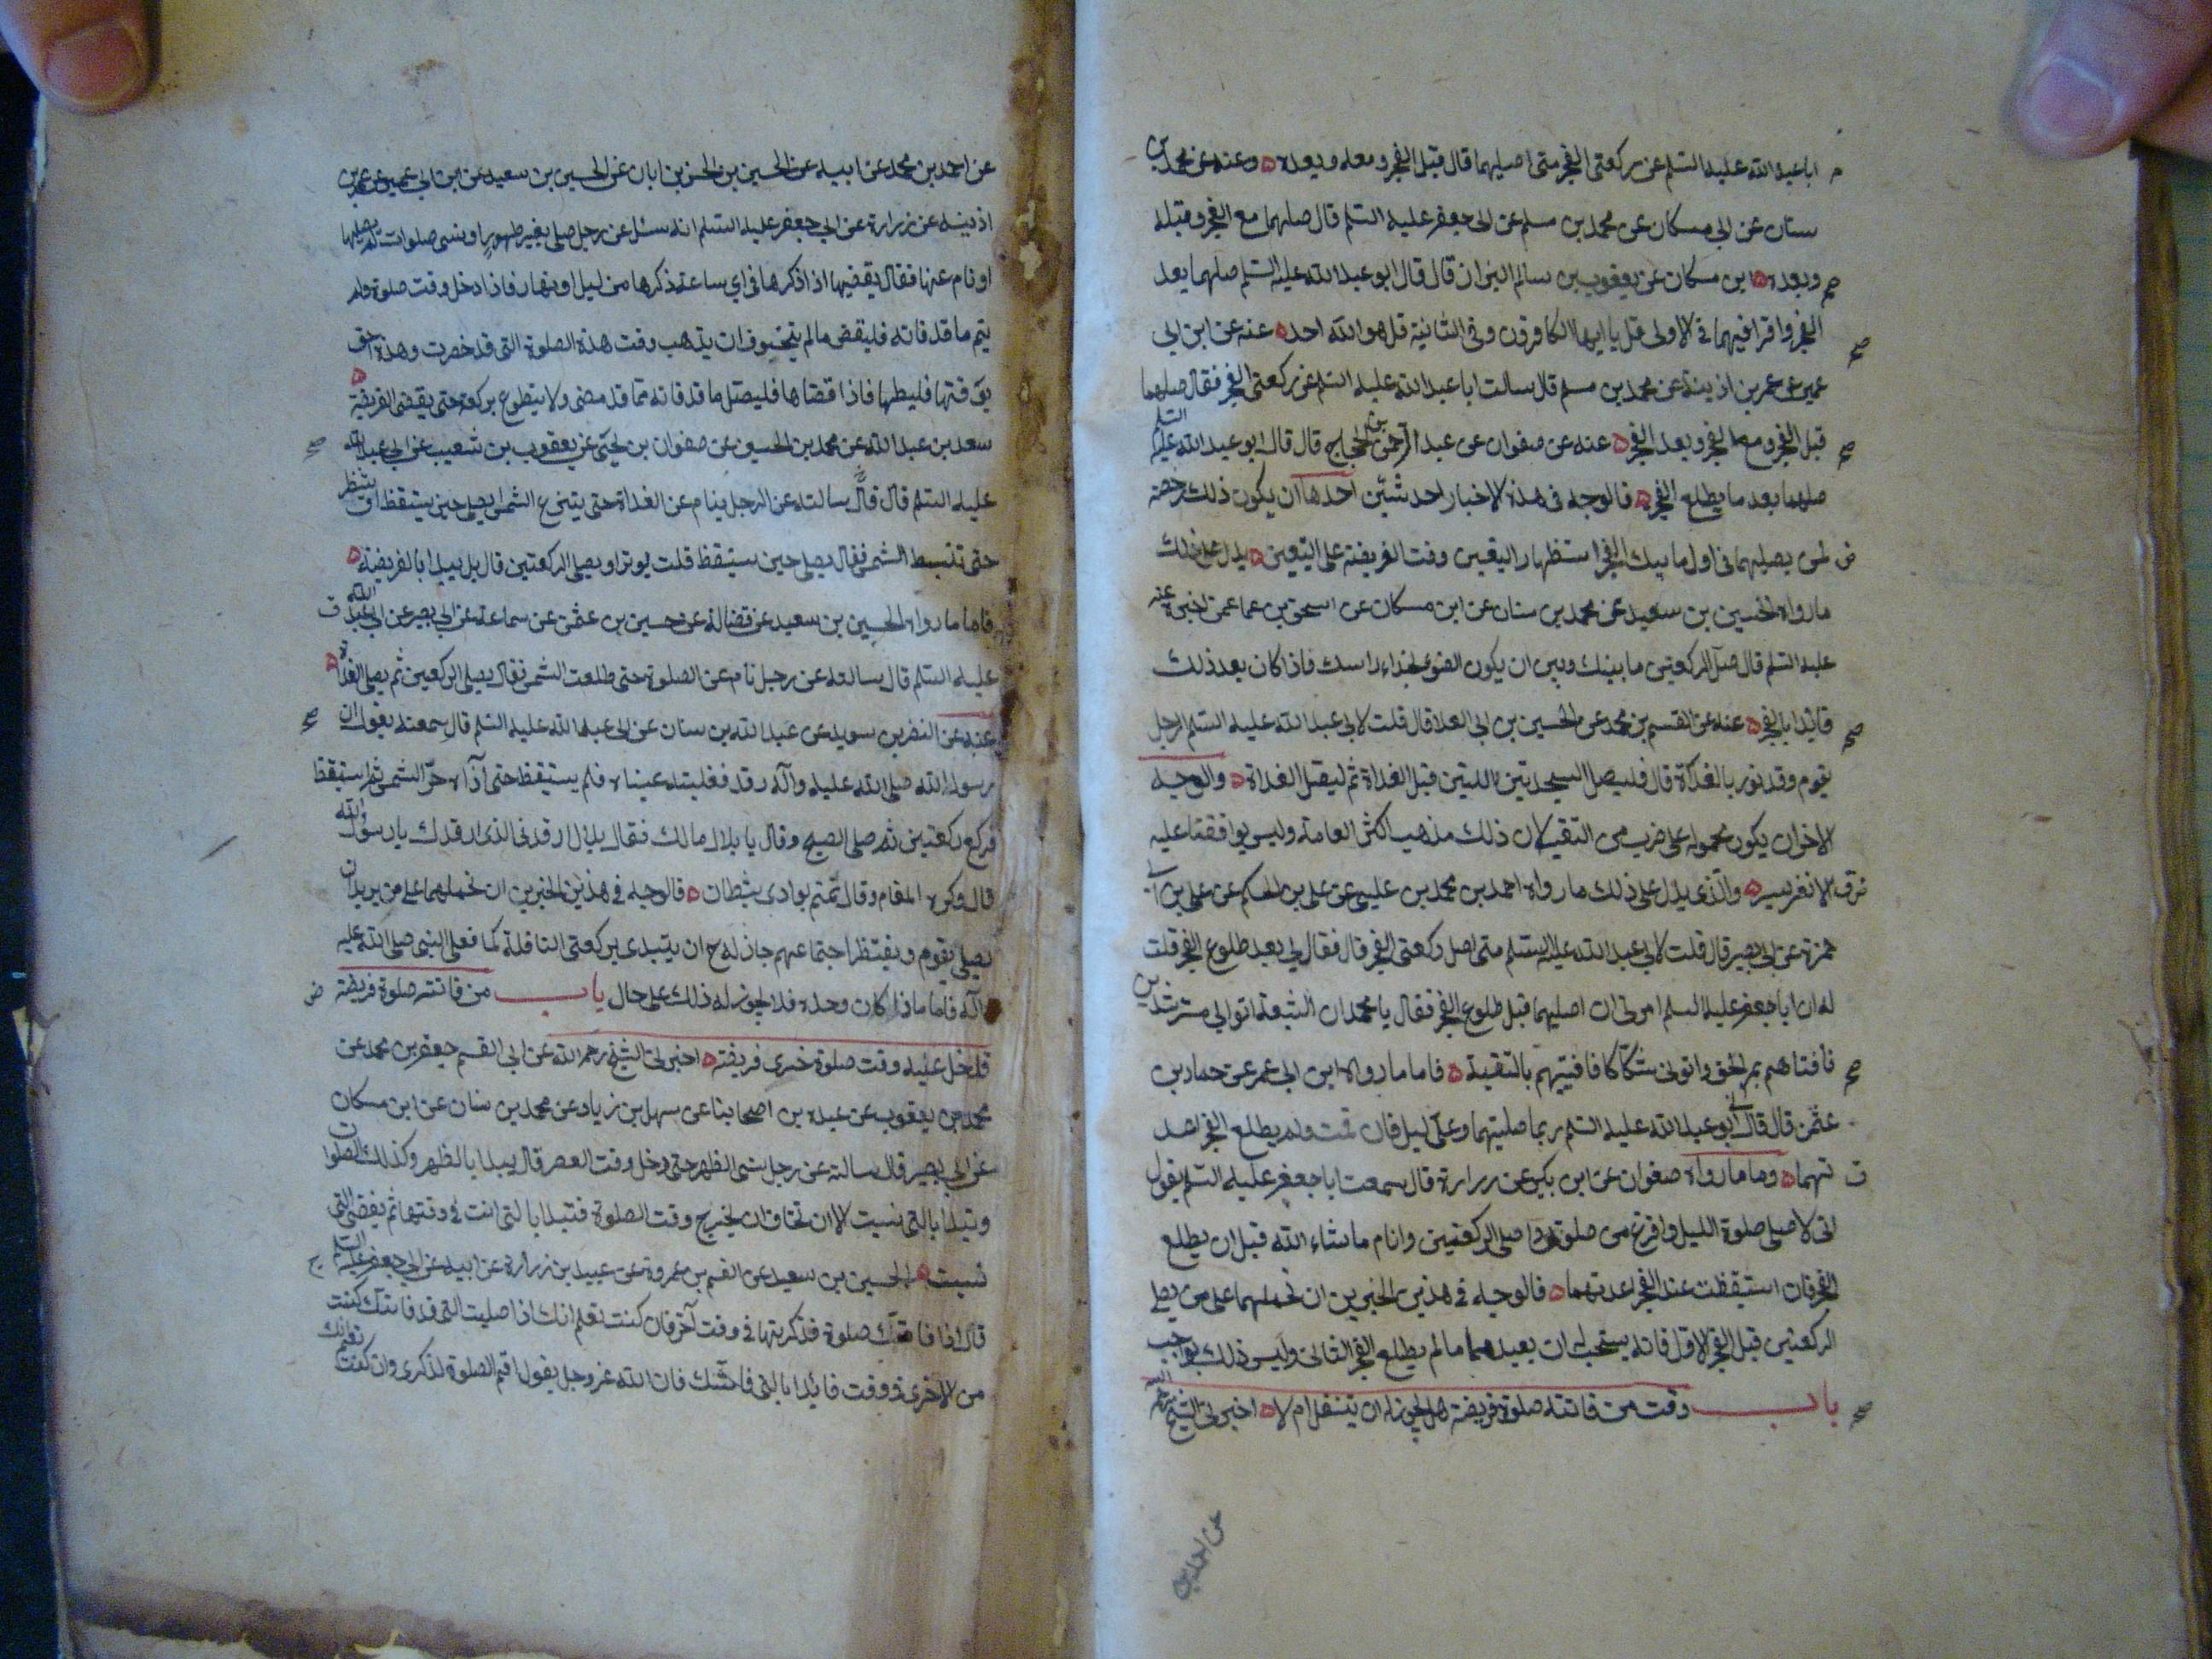 ابا عبد الله عليه السلم عن ركعتي الفجر متى اصليهما قال قبل الفجر ومعه وبعده وعنه عن محمد بن
سنان عن ابي مسكان عن محمد بن مسلم عن ابي جعفر عليه السلم قال صلهما مع الفجر وقبله
وبعده ابن مسكان عن يعقوب بن سالم البزان قال قال ابو عبد الله عليه السلم صلهما بعد
الفجر واقرا فيهما في الاولى قل يا ايها الكافرون وفي الثانية قل هو الله احد عنه عن ابن ابي
عمير عن عمر بن اذينة عن محمد بن مسلم قال سالت ابا عبد الله عليه السلم عن ركعتي الفجر فقال صلهما
قبل الفجر ومع الفجر وبعد الفجر عنه عن صفوان عن عبد الرحمن بن الحجاج قال قال ابو عبد الله عليه السلم
صلهما بعد ما يطلع الفجر فالوجه في هذه الاخبار احد شيئين احدها ان يكون ذلك رخصة
لمن يصليهما في اول ما يبدا الفجر استظهارا ليقين وقت الفريضة على اليقين يدل على ذلك
ما رواه الحسين بن سعيد عن محمد بن سنان عن ابن مسكان عن اسحق بن عما عمن اخبره عنه
عليه السلم قال صل الركعتين ما بينك وبين ان يكون الضوء بحذاء راسك فاذا كان بعد ذلك
فابدا بالفجر عنه عن القسم بن محمد عن الحسين بن ابي العلا قال قلت لابي عبد الله عليه السلم الرجل
يقوم وقد نور بالغداة قال فليصل السجدتين اللتين قبل الغداة ثم ليصل الغداة والوجه
الاخر ان يكون محمولة على ضرب من التقية لان ذلك مذهب اكثر العامة وليس يوافقنا عليه
الا نفر يسير والذي يدل على ذلك ما رواه احمد بن محمد بن عيسى عن علي بن الحكم عن علي بن ابي
حمزة عن ابي بصير قال قلت لابي عبد الله عليه السلم متى اصل ركعتي الفجر قال فقال لي بعد طلوع الفجر قلت
له ان ابا جعفر عليه السلم امرني ان اصليهما قبل طلوع الفجر فقال يا محمد ان الشيعة اتوا ابي مسترشدين
فافتاهم بمر الحق واتوني شكاكا فافتيتهم بالتقية فاما ما رواه ابن ابي عمير عن حماد بن
عثمن قال قال لي ابو عبد الله عليه السلم ربما صليتهما وعلي ليل فان قمت ولم يطلع الفجر اعد
تهما وما ما رواه صفوان عن ابن بكير عن زرارة قال سمعت ابا جعفر عليه السلم يقول
اني لاصلي صلوة الليل وافرغ من صلوتي واصلي الركعتين وانام ما شاء الله قبل ان يطلع
الفجر فان استيقظت عند الفجر اعدتهما فالوجه في هذين الخبرين ان نحملهما على من يصلي
الركعتين قبل الفجر الاول فانه يستحب له ان يعيدهما ما لم يطلع الفجر الثاني وليس ذلك بواجب
باب وقت من فاتته صلوة فريضة هل يجوز له ان يتنفل ام لا اخبرني الشيخ رحمه الله
عن احمد بن
عن احمد بن محمد عن ابيه عن الحسين بن الحسن بن ابان عن الحسين بن سعيد عن ابن ابي عمير عن عمر بن
اذينه عن زرارة عن ابي جعفر عليه السلم انه سئل عن رجل صلى بغير طهور او نسي صلوات لم يصليها
او نام عنها فقال يقضيها اذا ذكرها في اي ساعة ذكرها من ليل او نهار فاذا دخل وقت صلوة ولم
يتم ما قد فاته فليقض ما لم يتخوف ان يذهب وقت هذه الصلوة التي قد حضرت وهذه احق
بوقتها فليصلها فاذا قضاها فليصل ما قد فاته مما قد مضى ولا يتطوع بركعة حتى يقضي الفريضة
سعد بن عبد الله عن محمد بن الحسين عن صفوان بن يحيى عن يعقوب بن شعيب عن ابي عبد الله
عليه السلم قال قال سالته عن الرجل ينام عن الغداة حتى يبزغ الشمس ايصلي حين يستيقظ او ينتظر
حتى تنبسط الشمس فقال يصلي حين يستيقظ قلت يوتر او يصلي الركعتين قال بل يبدا بالفريضة
فاما ما رواه الحسين بن سعيد عن فضالة عن حسين بن عثمن عن سماعة عن ابي بصير عن ابي عبد الله
عليه السلم قال سالته عن رجل نام عن الصلوة حتى طلعت الشمس فقال يصلي الركعتين ثم يصلي الغداة
عنه عن النضر بن سويد عن عبد الله بن سنان عن ابي عبد الله عليه السلم قال سمعته يقول ان
رسول الله صلى الله عليه وآله رقد فغلبته عيناه فلم يستيقظ حتى آذاه حر الشمس ثم استيقظ
فركع ركعتين ثم صلى الصبح وقال يا بلال مالك فقال بلال ارقدني الذي ارقدك يا رسول الله
قال وكره المقام وقال نمتم بوادي شيطان فالوجه في هذين الخبرين ان نحملهما على من يريد ان
يصلي بقوم وينتظر اجتماعهم جاز له ح ان يبتدي بركعتي النافلة كما فعل النبي صلى الله عليه
وآله فاما اذا كان وحده فلا يجوز له ذلك على حال باب من فاتته صلوة فريضة
فدخل عليه وقت صلوة اخرى فريضة اخبرني الشيخ رحمه الله عن ابي القسم جعفر بن محمد عن
محمد بن يعقوب عن عدة من اصحابنا عن سهل بن زياد عن محمد بن سنان عن ابن مسكان
عن ابي بصير قال سالته عن رجل نسي الظهر حتى دخل وقت العصر قال يبدا بالظهر وكذلك الصلوات
وتبدا بالتي نسيت الا ان تخاف ان يخرج وقت الصلوة فتبدا بالتي انت في وقتها ثم تقضي التي
نسيت الحسين بن سعيد عن القسم بن عروة عن عبيد بن زرارة عن ابيه عن ابي جعفر عليه السلم
قال اذا فاتتك صلوة فذكرتها في وقت آخر فان كنت تعلم انك اذا صليت التي قد فاتتك كنت
من الاخرى في وقت فابدا بالتي فاتتك فان الله عز وجل يقول اقم الصلوة لذكري وان كنت تعلم انك